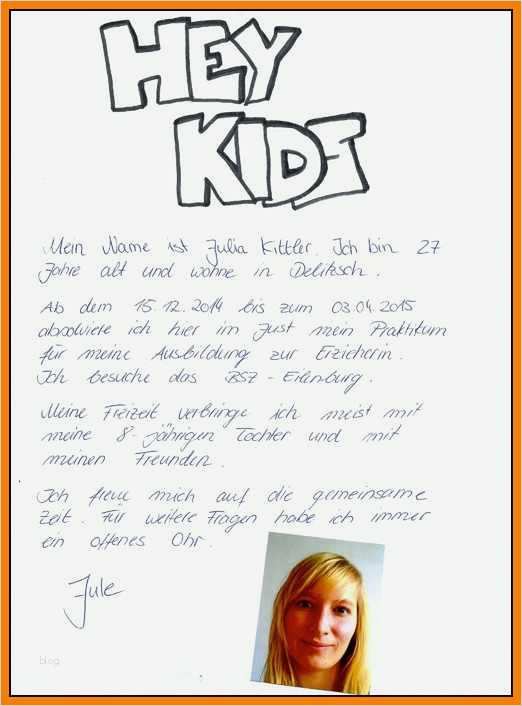 HEY
KIDS
Mein Name ist Julia Kittler. Ich bin 27
Jahre alt und wohne in Delitzsch.
Ab dem 15.12.2014 bis zum 03.04.2015
absolviere ich hier im Just mein Praktikum
für meine Ausbildung zur Erzieherin.
Ich besuche das BSZ-Eilenburg.
Meine Freizeit verbringe ich meist mit
meine 8-jährigen Tochter und mit
meinen Freunden.
Ich freue mich auf die gemeinsame
Zeit. Für weitere Fragen habe ich immer
ein offenes Ohr.
Jule
blog